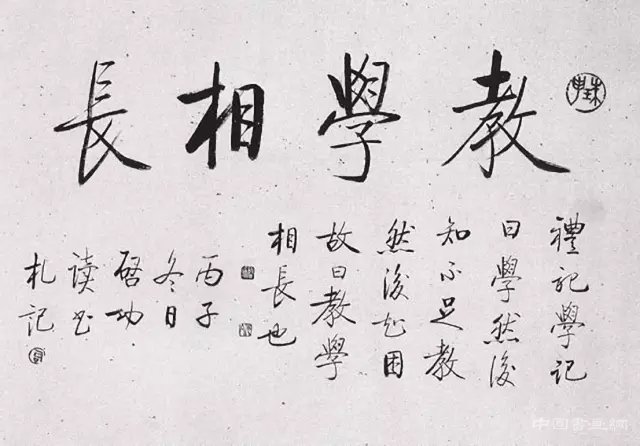 珠申
教學相長
禮記學記
曰學然後
知不足教
然後知困
故曰教學
相長也
丙子
冬日
启功
读书
札記
中国書画網